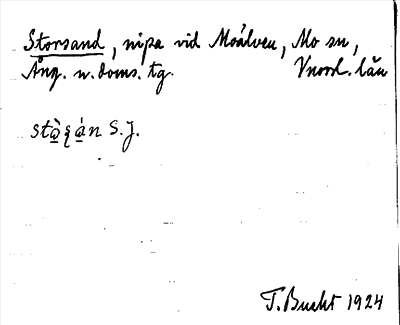 Storsand, nipa vid Moälven, Mo sn,
Ång. n. doms. tg. Vnorrl. län
stȧ̀ʂȧ́n S.J.
T. Bucht 1924